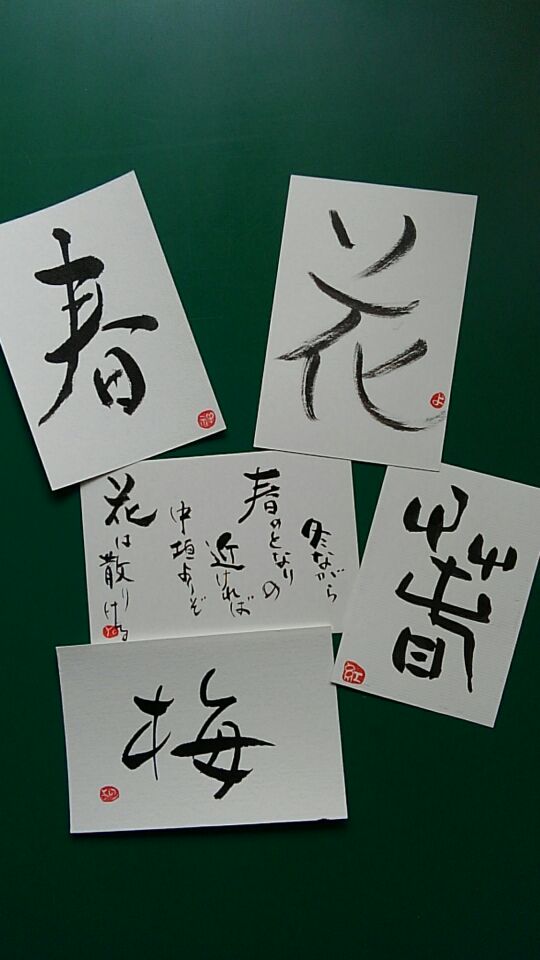 春
花
よ
冬ながら
春のとなりの
近ければ
中垣よりぞ
花は散りける
春
紅
梅